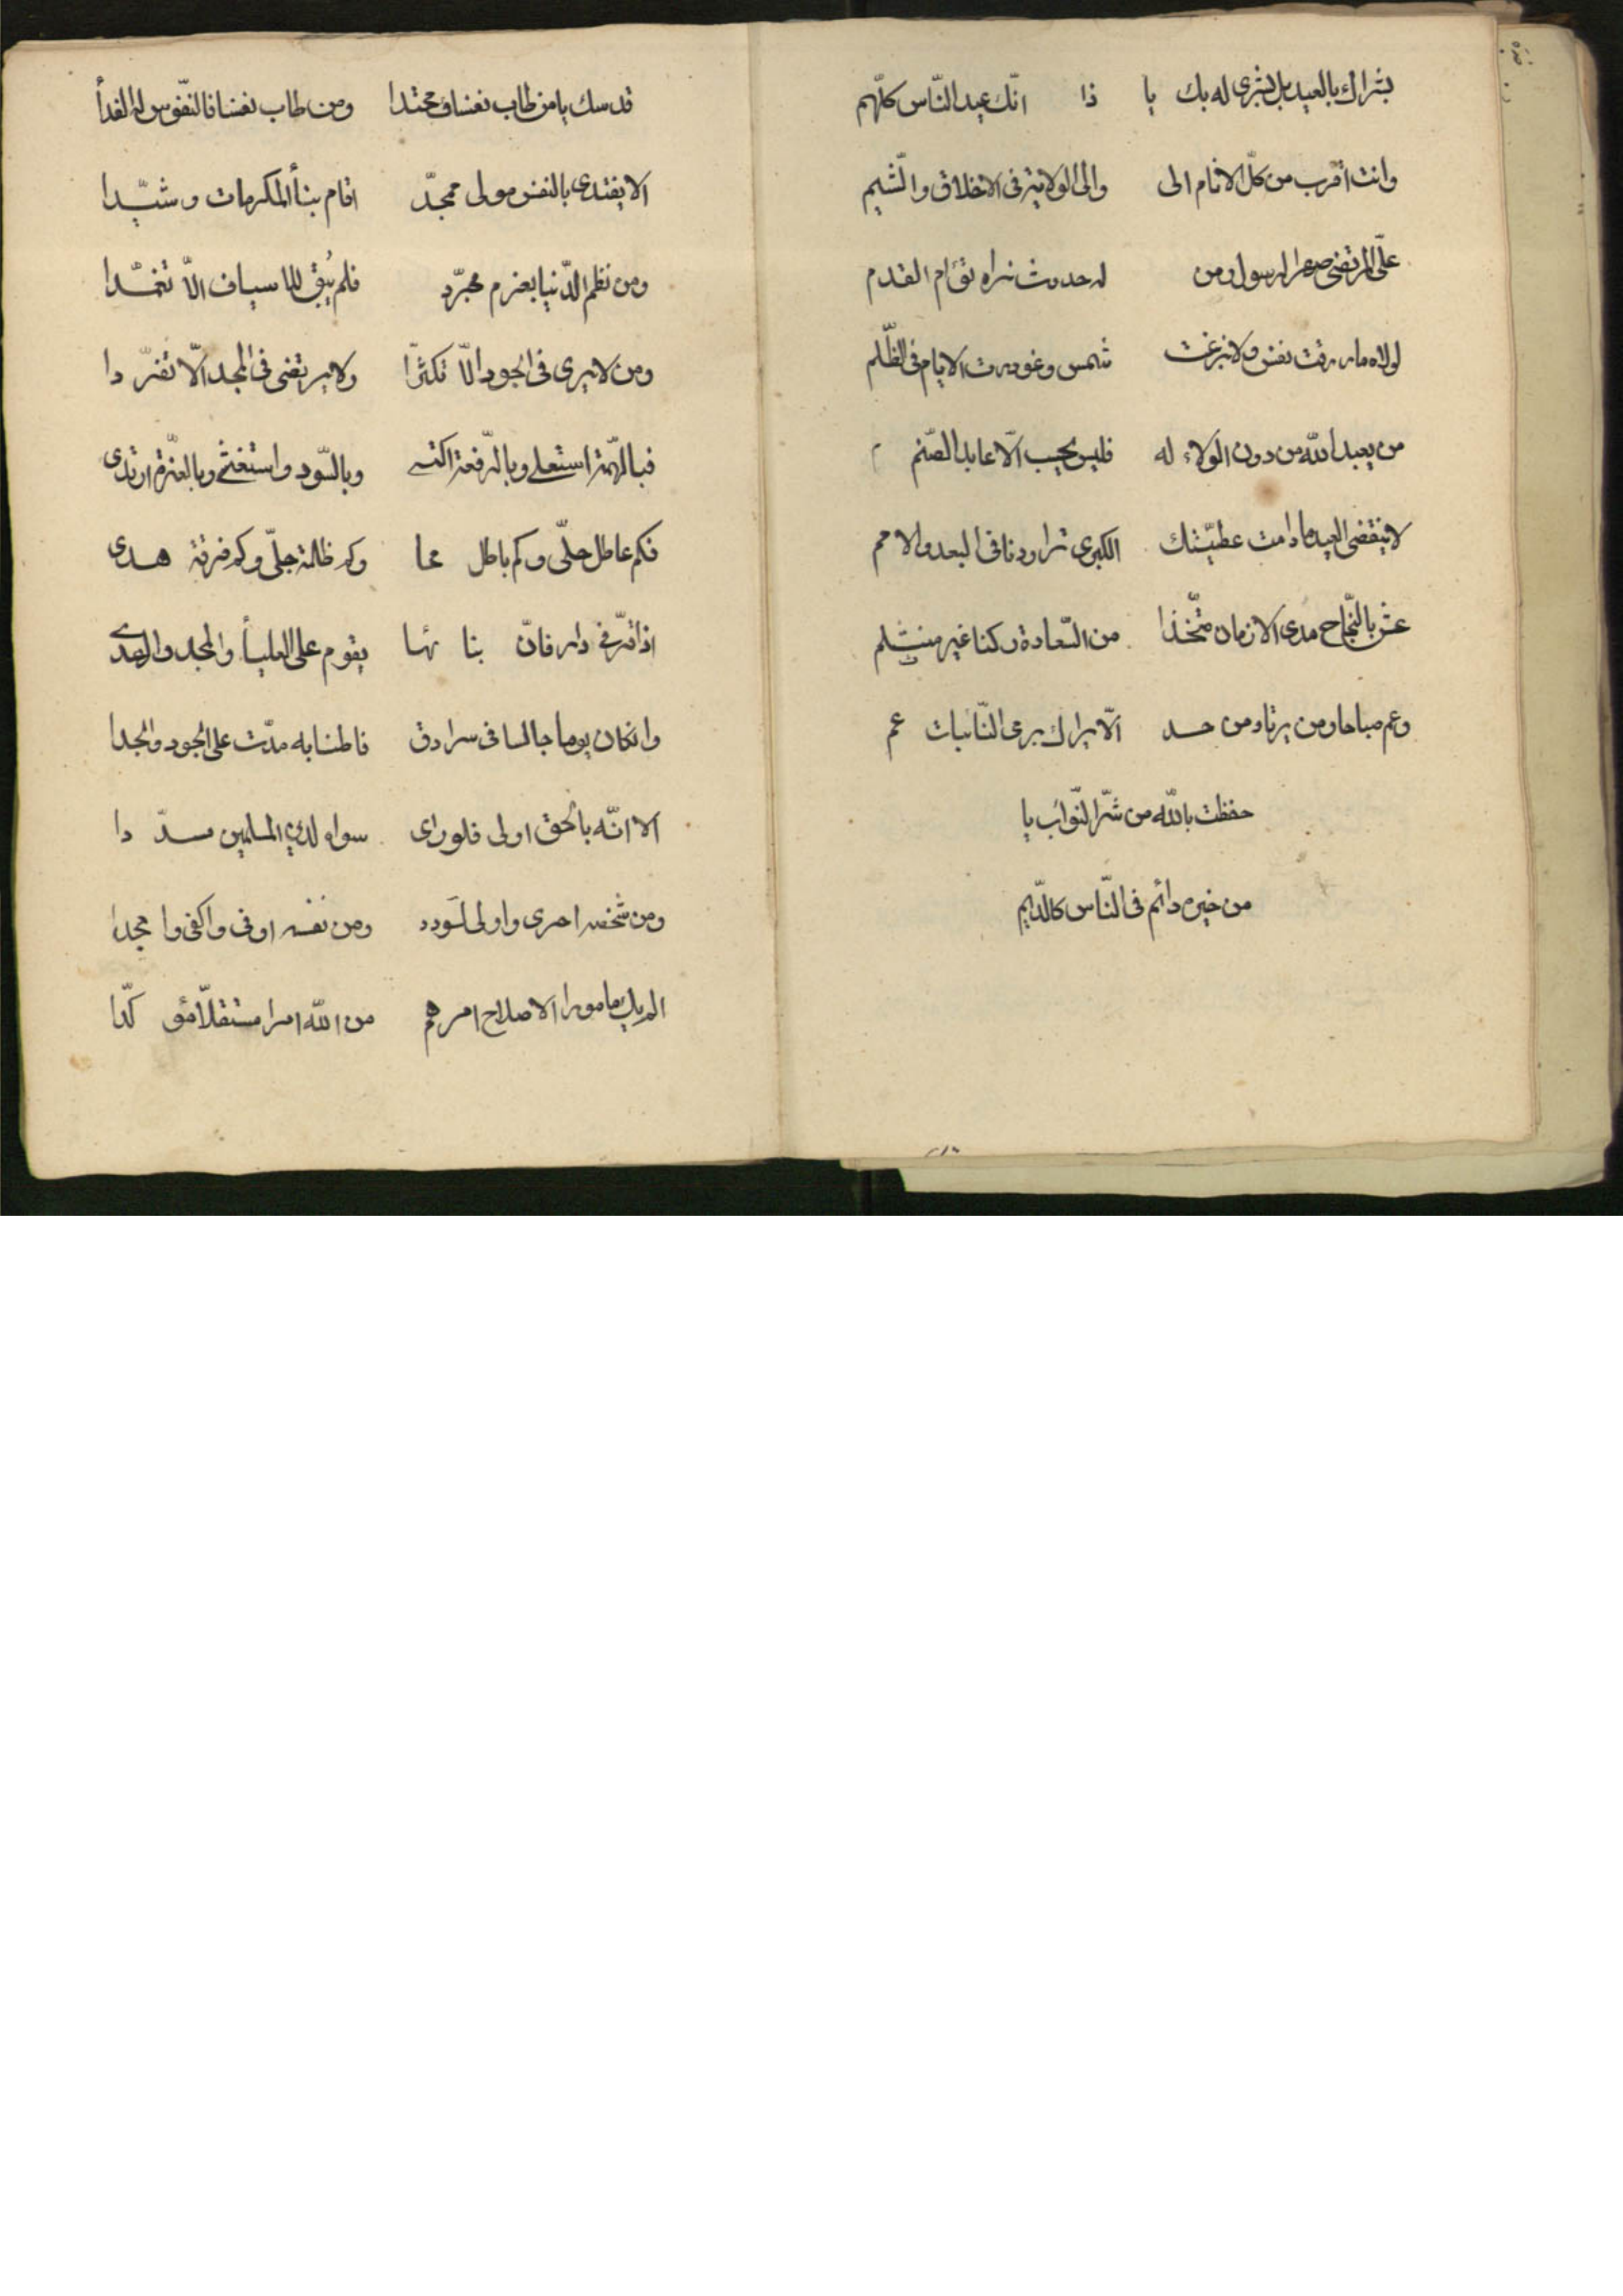 بشراك بالعيد بل بشرى له بك يا ذا انّك عيد النّاس كلّهم
وانت اقرب من كلّ الانام الى والى الولاية فى الاخلاق والشّيم
علىّ المرتضى صهر الرسول ومن له حدوث نراه تؤام القدم
لولاه ما رزقت نفس ولا بزغت شمس وغودرت الايام فى الظّلم
من يعبد اللّه من دون الولاء له فليس يحسب الّا عابد الصّنم
لا ينقضى العيد ما دامت عطيّتك الكبرى تراودنا فى البعد والامم
عش بالنّجاح مدى الازمان متّخذا من السّعادة ركنا غير منثلم
وعم صباحا ومن يرتاد من حسد الّا يراك يرعى النّائبات عم
حفظت باللّه من شرّ النّوائب يا
من خيره دائم فى النّاس كالدّيم
قدسك يا من طاب نفسا ومحتدا ومن طاب نفسا فالنّفوس له الفدأ
الا يفتدى بالنفس مولى ممجّد اقام بنأ المكرمات وشيّدا
ومن نظم الدّنيا بعزم مجرّد فلم يُبق للاسياف الّا تغمّدا
ومن لا يرى فى الجود الّا تكثرا ولا يرتضى فى المجد الّا تفرّدا
فبالهمّة استعلى وبالرّفعة اكتسى وبالسّودد واستغشى وبالعزّة ارتدى
فكم عاطل حلّى وكم باطل محا وكم ظلمة جلّى وكم فرقة هدى
اذا قرّ فى دار فانّ بنائها يقوم على العليأ والمجد والهدى
وان كان يوما جالسا فى سرادق فاطنابه مدّت على الجود والجدا
الا انّه بالحق اولى فلو راى سواه لدين المسلمين مسدّدا
ومن شخصه احرى واولى لسودد ومن نفسه اوفى واكفى وامجدا
الم يك مامورا لاصلاح امرهم من اللّه امرا مستقلّا مؤكّدا